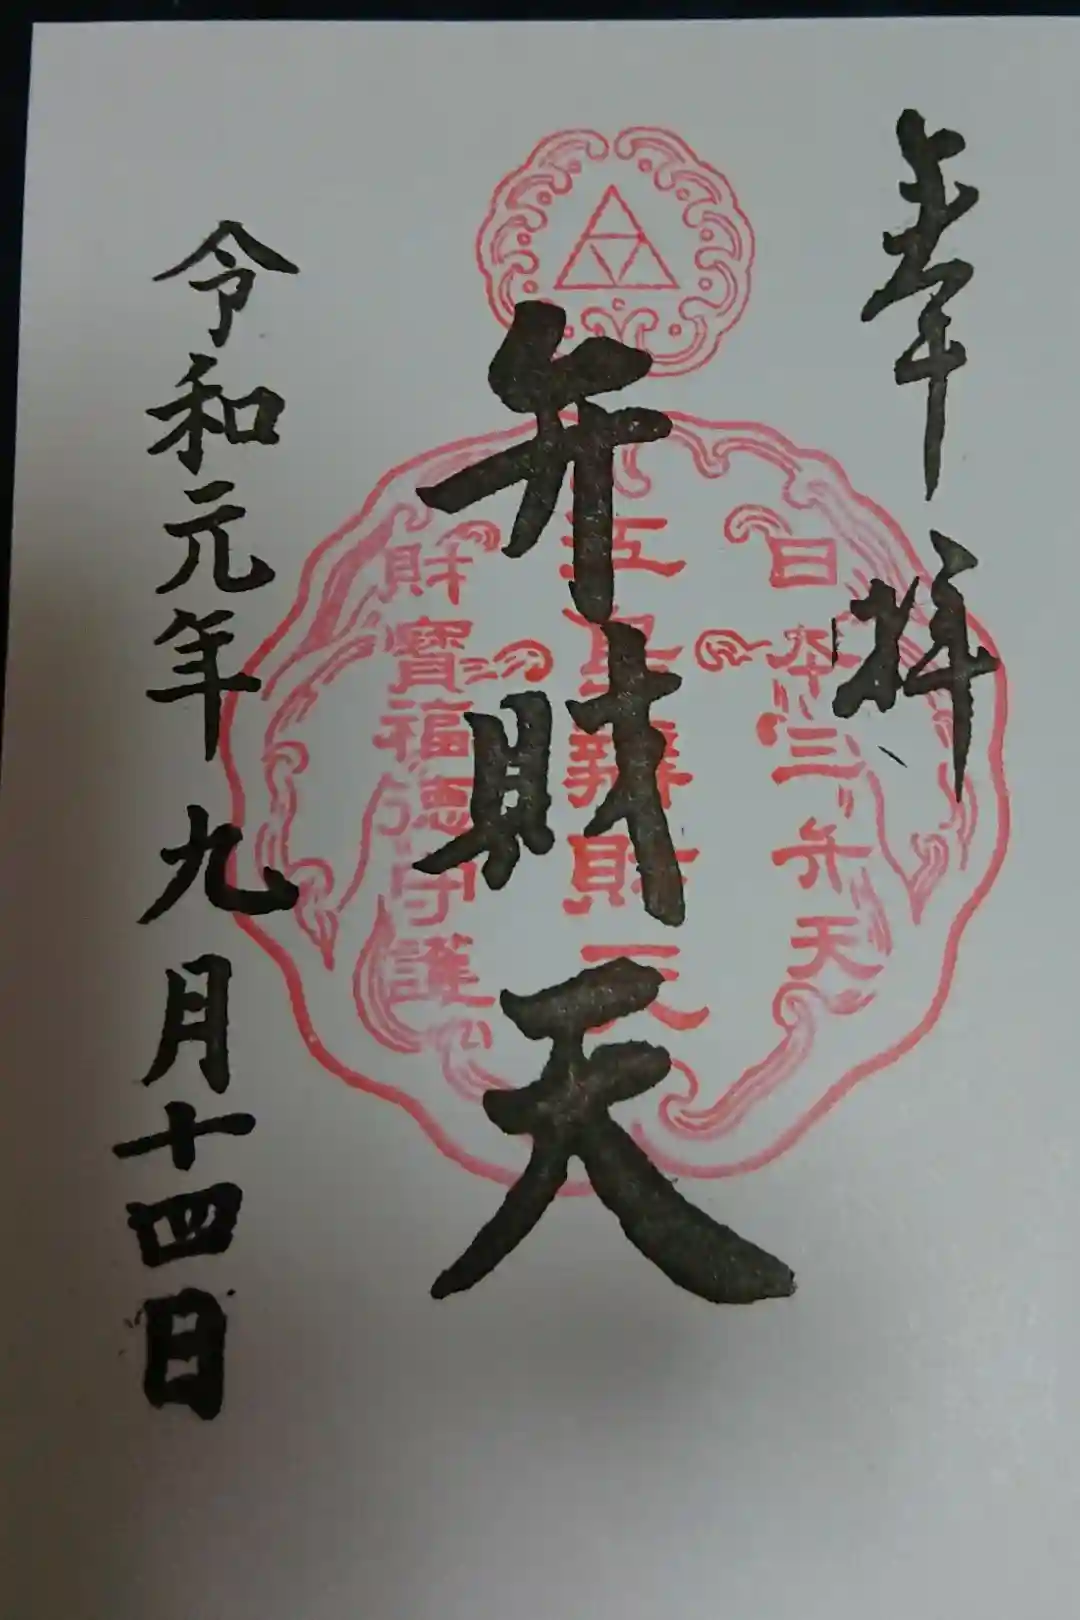 奉拝
弁財天
令和元年九月十四日
日本三弁天
財寶福徳守護